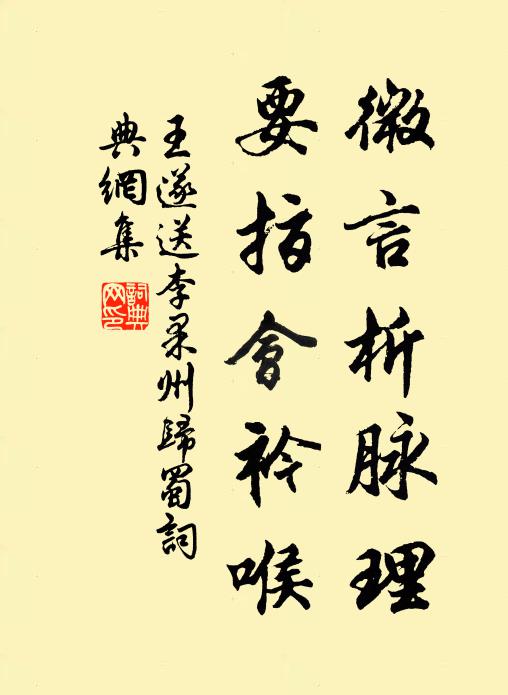 微言析脉理
要指會衿喉
王遂送李果州歸蜀詞
典網集
詞典網印